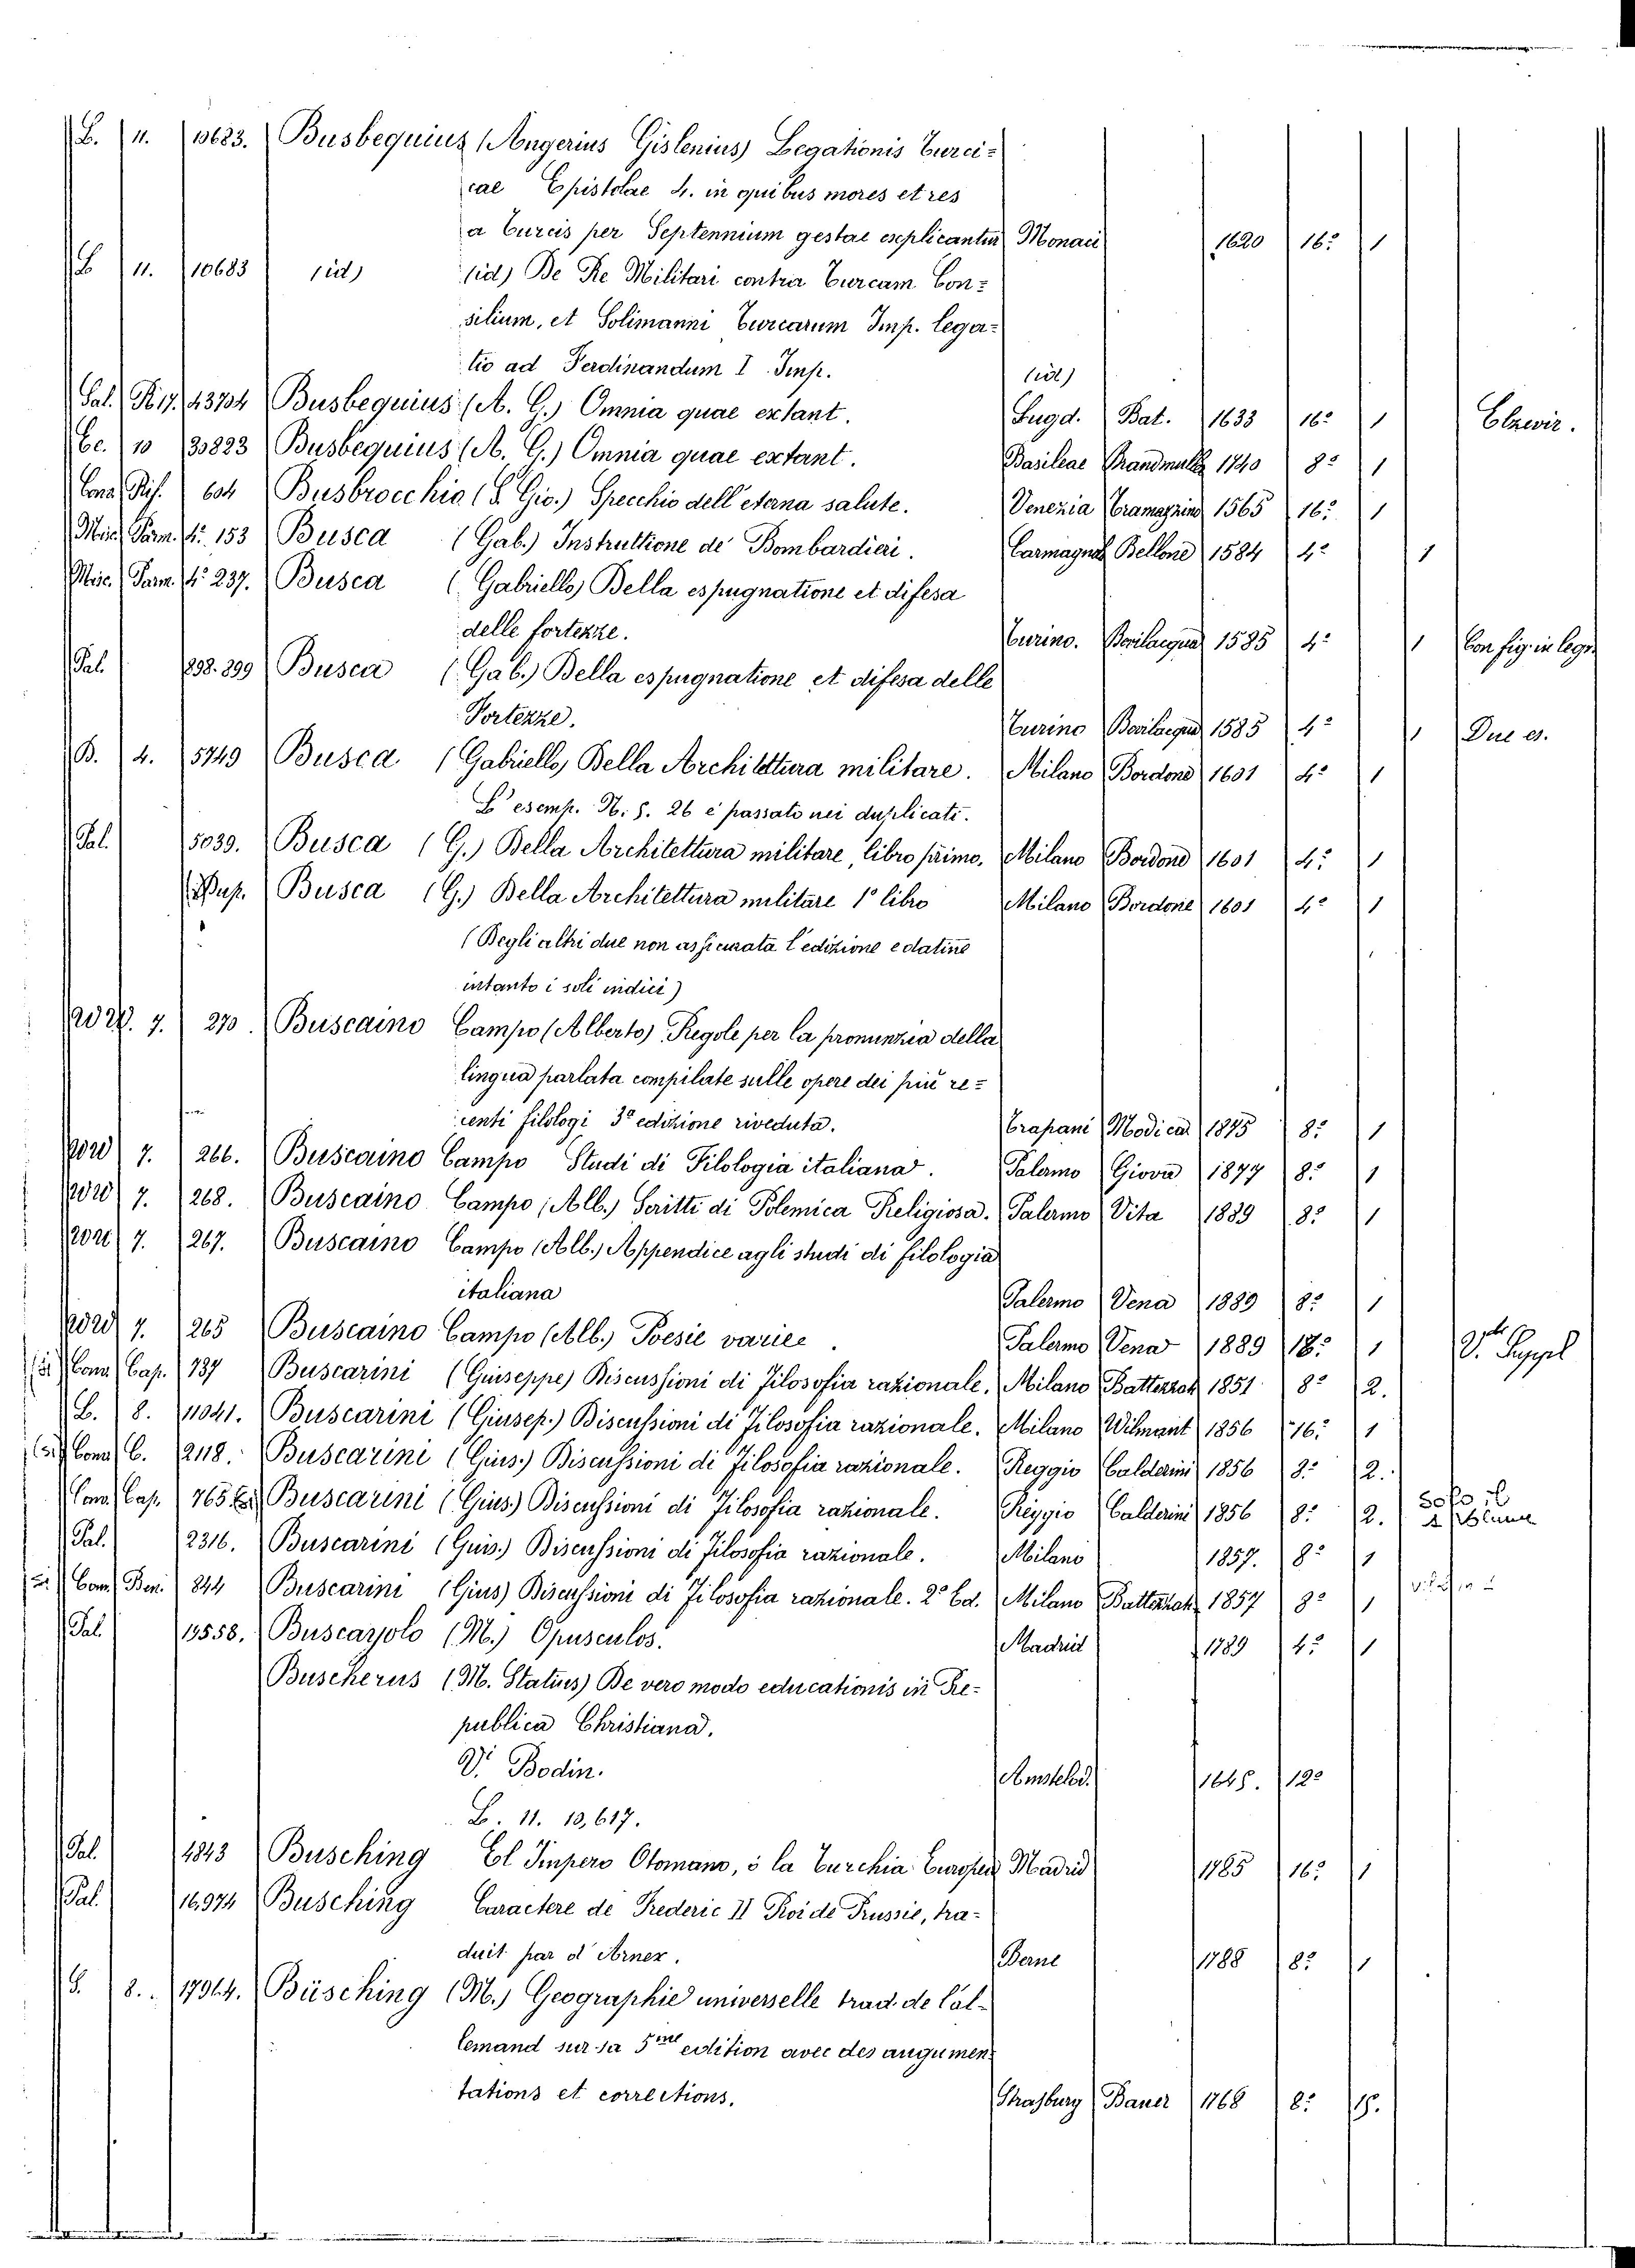 B. 11. 10683. Busbequius (Augerius Gislenius) Legationis Turci-
cae Epistolae 4. in quibus mores et res
a Turcis per Septennium gestae explicantur Monaci 1620 16.° 1
B 11. 10683 (id) (id) De Re Militari contra Turcam Con-
silium, et Solimanni Turcarum Imp. lega-
tio ad Ferdinandum I Imp. (id)
Pal. 43704 Busbequius (A. G.) Omnia quae extant. Lugd. Bat. 1633 16.° 1 Elzevir.
Te. 10 30823 Busbequius (A. G.) Omnia quae extant. Basileae Brandmull 1740 8.° 1
Cona Rif. 604 Busbrocchio (S. Gio.) Specchio dell'eterna salute. Venezia Tramezzino 1565 16.° 1
Misc. Parm. 4.° 153 Busca (Gab.) Instruttione de' Bombardieri. Carmagnola Bellone 1584 4.° 1
Misc. Parm. 4.° 237. Busca (Gabriello) Della espugnatione et difesa
delle fortezze. Turino. Bevilacqua 1585 4.° 1 Con fig. in legn.
Pal. 898.899 Busca (Gab.) Della espugnatione et difesa delle
Fortezze. Turino Bevilacqua 1585 4.° 1 Due es.
B. 4. 5749 Busca (Gabriello) Della Archilettura militare. Milano Bordone 1601 4.° 1
L'esemp. N. S. 26 è passato nei duplicati.
Pal. 5039. Busca (G.) Della Architettura militare, libro primo. Milano Bordone 1601 4.° 1
Dup. Busca (G.) Della Architettura militare 1° libro Milano Bordone 1601 4.° 1
(Degli altri due non assicurata l'edizione e datine
intanto i soli indici)
7. 270. Buscaino Campo (Alberto) Regole per la pronunzia della
lingua parlata compilate sulle opere dei più re-
centi filologi 3a edizione riveduta. Trapani Modica 1875 8.° 1
7. 266. Buscaino Campo Studi di Filologia italiana. Palermo Giova 1877 8.° 1
7. 268. Buscaino Campo (Alb.) Scritti di Polemica Religiosa. Palermo Vita 1889 8.° 1
7. 267. Buscaino Campo (Alb.) Appendice agli studi di filologia
italiana Palermo Vena 1889 8.° 1
7. 265 Buscaino Campo (Alb.) Poesie varie. Palermo Vena 1889 18.° 1
Conv. Cap. 137 Buscarini (Guiseppe) Discussioni di Filosofia razionale. Milano Battezzati 1851 8.° 2.
B. 8. 11041. Buscarini (Giusep.) Discussioni di Filosofia razionale. Milano Wilmant 1856 16.° 1
Conv. C. 2118. Buscarini (Gius.) Discussioni di Filosofia razionale. Reggio Calderini 1856 8.° 2.
Conv. Cap. 765 Buscarini (Gius.) Discussioni di Filosofia razionale. Reggio Calderini 1856 8.° 2. Solo il 2 volume
Pal. 2316. Buscarini (Guis.) Discussioni di Filosofia razionale. Milano 1857. 8.° 1
Conv. Ben. 844 Buscarini (Gius) Discussioni di Filosofia razionale. 2a Ed. Milano Battezzati 1857 8.° 1
Pal. 13558. Buscayolo (M.) Opusculos. Madrid 1789 4.° 1
Buscherus (M. Statius) De vero modo educationis in Re-
publica Christiana.
V. Bodin. Amstelod. 1645. 12.°
B. 11. 10,617.
Pal. 4843 Busching El Impero Otomano, ò la Turchia Europea Madrid 1785 16.° 1
Pal. 16,974 Busching Caractere de Frederic II Roi de Prussie, tra-
duit par d'Arnex. Berne 1788 8.° 1
S. 8. 17964. Büsching (M.) Geographie universelle trad. de l'al-
lemand sur sa 5me edition avec des augumen-
tations et corrections. Strasburg Bauer 1768 8.° 15.